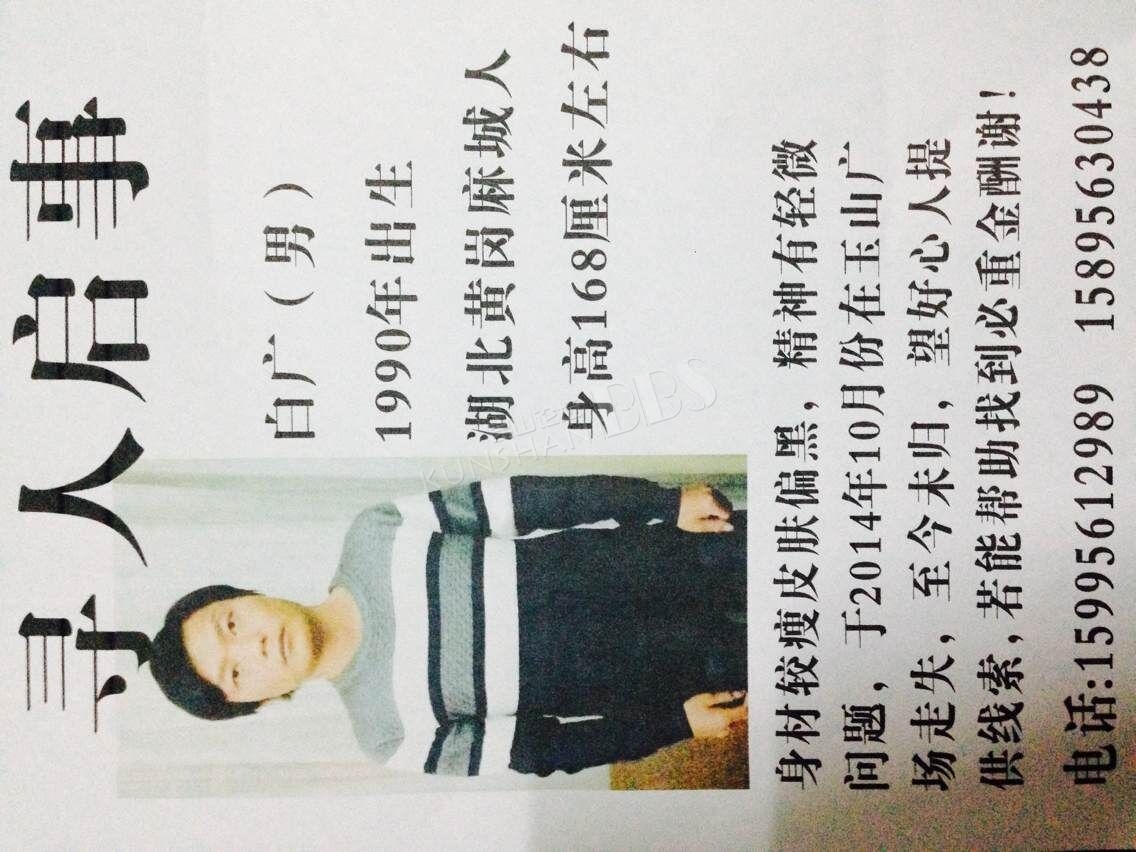 寻人启事
白广（男）
1990年出生
湖北黄岗麻城人
身高168厘米左右
身材较瘦皮肤偏黑，精神有轻微
问题，于2014年10月份在玉山广
场走失，至今未归，望好心人提
供线索,若能帮助找到必重金酬谢!
电话:15995612989 15895630438
KUNSHAN BBS